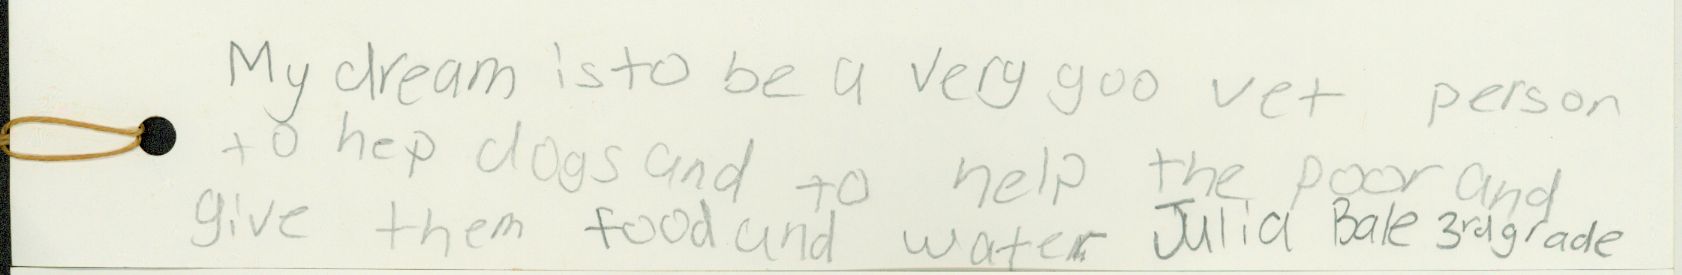 My dream is to be a very goo vet person
to hep dogs and to help the poor and
give them food and water Julia Bale 3rd grade